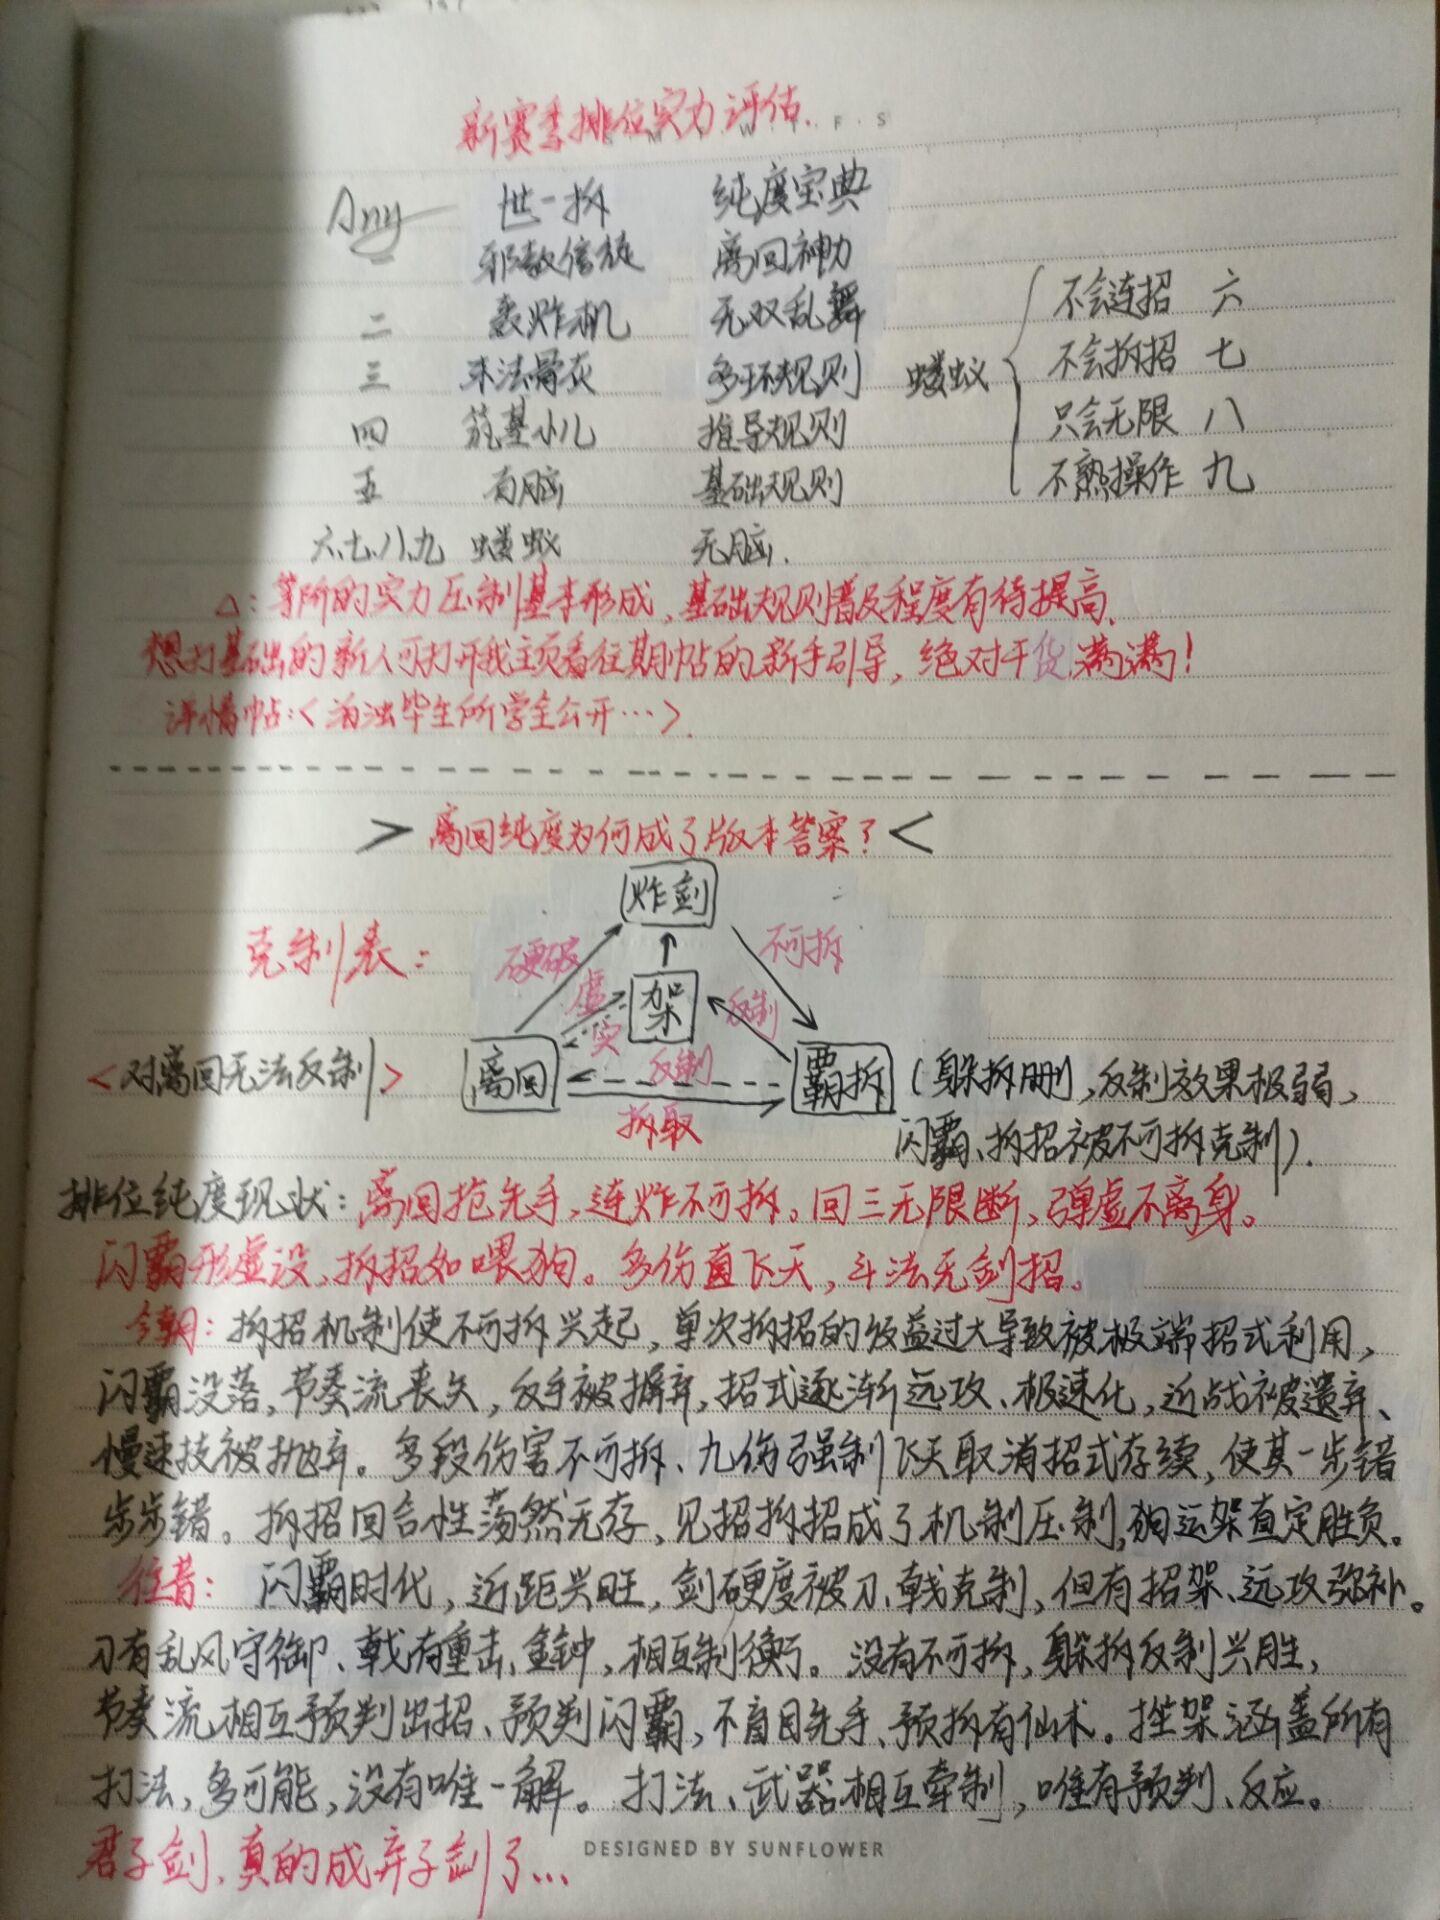 新赛季排位实力评估.
M T W T F S
Any 世一拆 纯度宝典
一 邪教信徒 离回神力
二 轰炸机 无双乱舞
三 末法骨灰 多环规则
四 筑基小儿 推导规则
五 有脑 基础规则
六、七、八、九 蝼蚁 无脑.
蝼蚁
不会连招 六
不会拆招 七
只会无限 八
不熟操作 九
△:等阶的实力压制基本形成,基础规则普及程度有待提高.
想打基础的新人可打开我主页看往期帖的新手引导,绝对干货满满!
详情帖:<泊浊毕生所学全公开…>.
> 离回纯度为何成了版本答案? <
克制表:
炸剑
硬破
不可拆
虚
实
架
反制
<对离回无法反制>
离回
反制
拆取
霸拆
(躲拆删,反制效果极弱,
闪霸、拆招被不可拆克制).
排位纯度现状:离回抢先手,连炸不可拆。回三无限断,弹虚不离身。
闪霸形虚设,拆招如喂狗。多伤直飞天,斗法无剑招。
今朝:拆招机制使不可拆兴起,单次拆招的收益过大导致被极端招式利用,
闪霸没落,节奏流丧失,反手被摒弃,招式逐渐远攻、极速化,近战被遗弃、
慢速技被抛弃。多段伤害不可拆、九伤强制飞天取消招式存续,使其一步错
步步错。拆招回合性荡然无存,见招拆招成了机制压制,狗运架直定胜负。
往昔:闪霸时代,近距兴旺,剑硬度被刀、戟克制,但有招架、远攻弥补。
刀有乱风守御、戟有重击、金钟,相互制衡。没有不可拆,躲拆反制兴胜,
节奏流相互预判出招、预判闪霸,不盲目先手、预拆有仙术。挫架涵盖所有
打法,多可能,没有唯一解。打法、武器相互牵制,唯有预判、反应。
君子剑,真的成弃子剑了...
DESIGNED BY SUNFLOWER